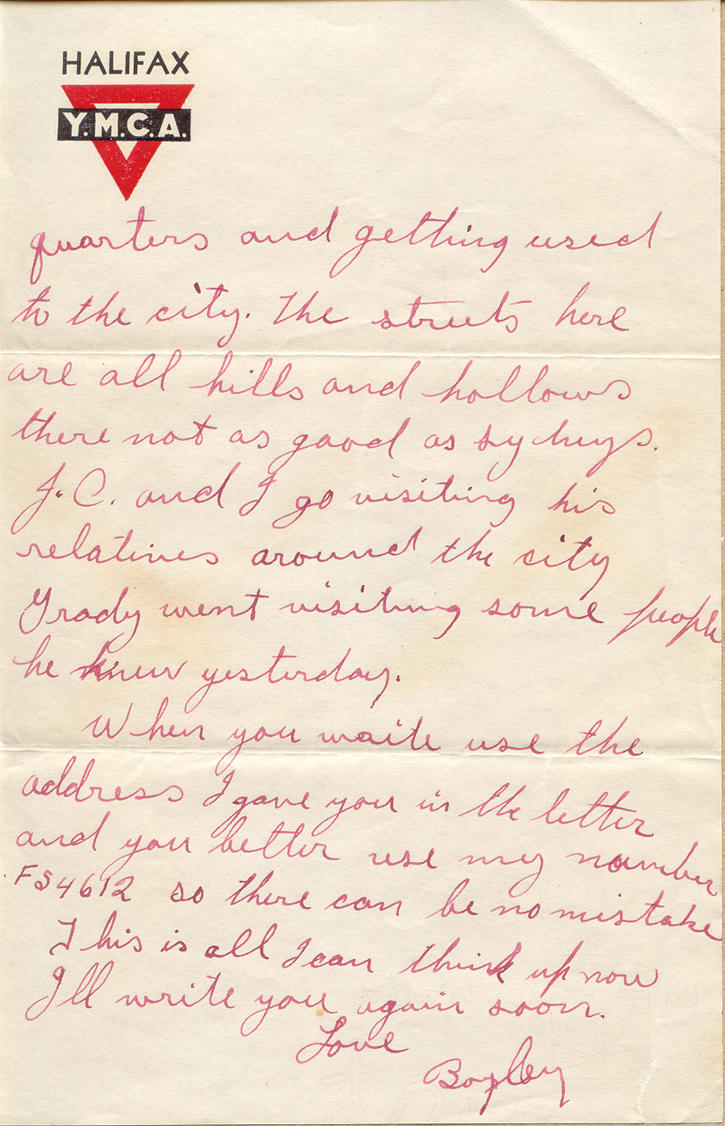 HALIFAX
Y.M.C.A.
quarters and getting used
to the city. The streets here
are all hills and hollows
there not as good as sydneys.
J.C. and I go visiting his
relatives around the city
Grady went visiting some people
he knew yesterday.
When you waite use the
address I gave you in the letter
and you better use my number
FS4612 so there can be no mistake
This is all I can think up now
I'll write you again soon.
Love